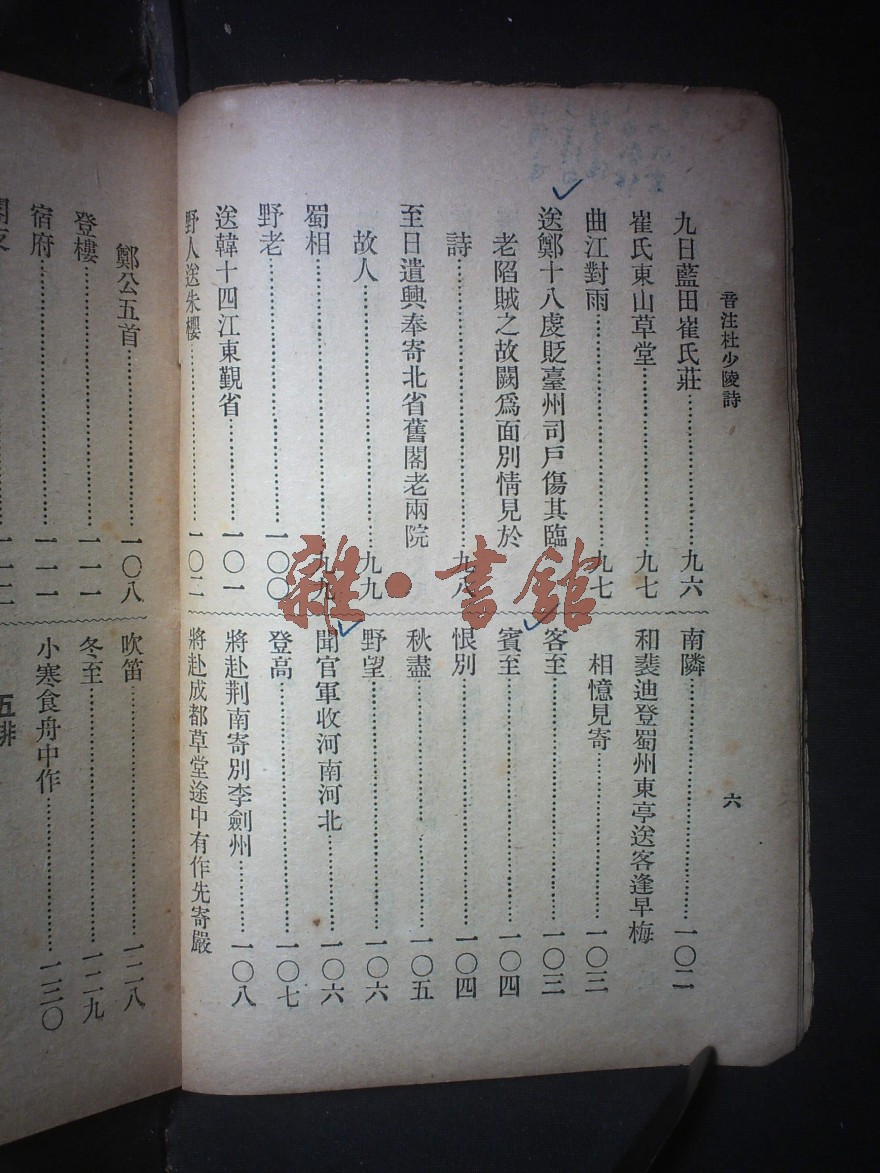 音注杜少陵詩
六
九日藍田崔氏莊……九六
崔氏東山草堂……九七
曲江對雨……九七
送鄭十八虔貶臺州司戶傷其臨
老陷賊之故闕爲面別情見於
詩……九八
至日遣興奉寄北省舊閣老兩院
故人……九九
蜀相……九九
野老……一〇〇
送韓十四江東覲省……一〇一
野人送朱櫻……一〇二
南隣……一〇二
和裴迪登蜀州東亭送客逢早梅
相憶見寄……一〇三
客至……一〇三
賓至……一〇四
恨別……一〇四
秋盡……一〇五
野望……一〇六
聞官軍收河南河北……一〇六
登高……一〇七
將赴荆南寄別李劍州……一〇八
將赴成都草堂途中有作先寄嚴
鄭公五首……一〇八
登樓……一一一
宿府……一一一
吹笛……一二八
冬至……一二九
小寒食舟中作……一三〇
雜·書館